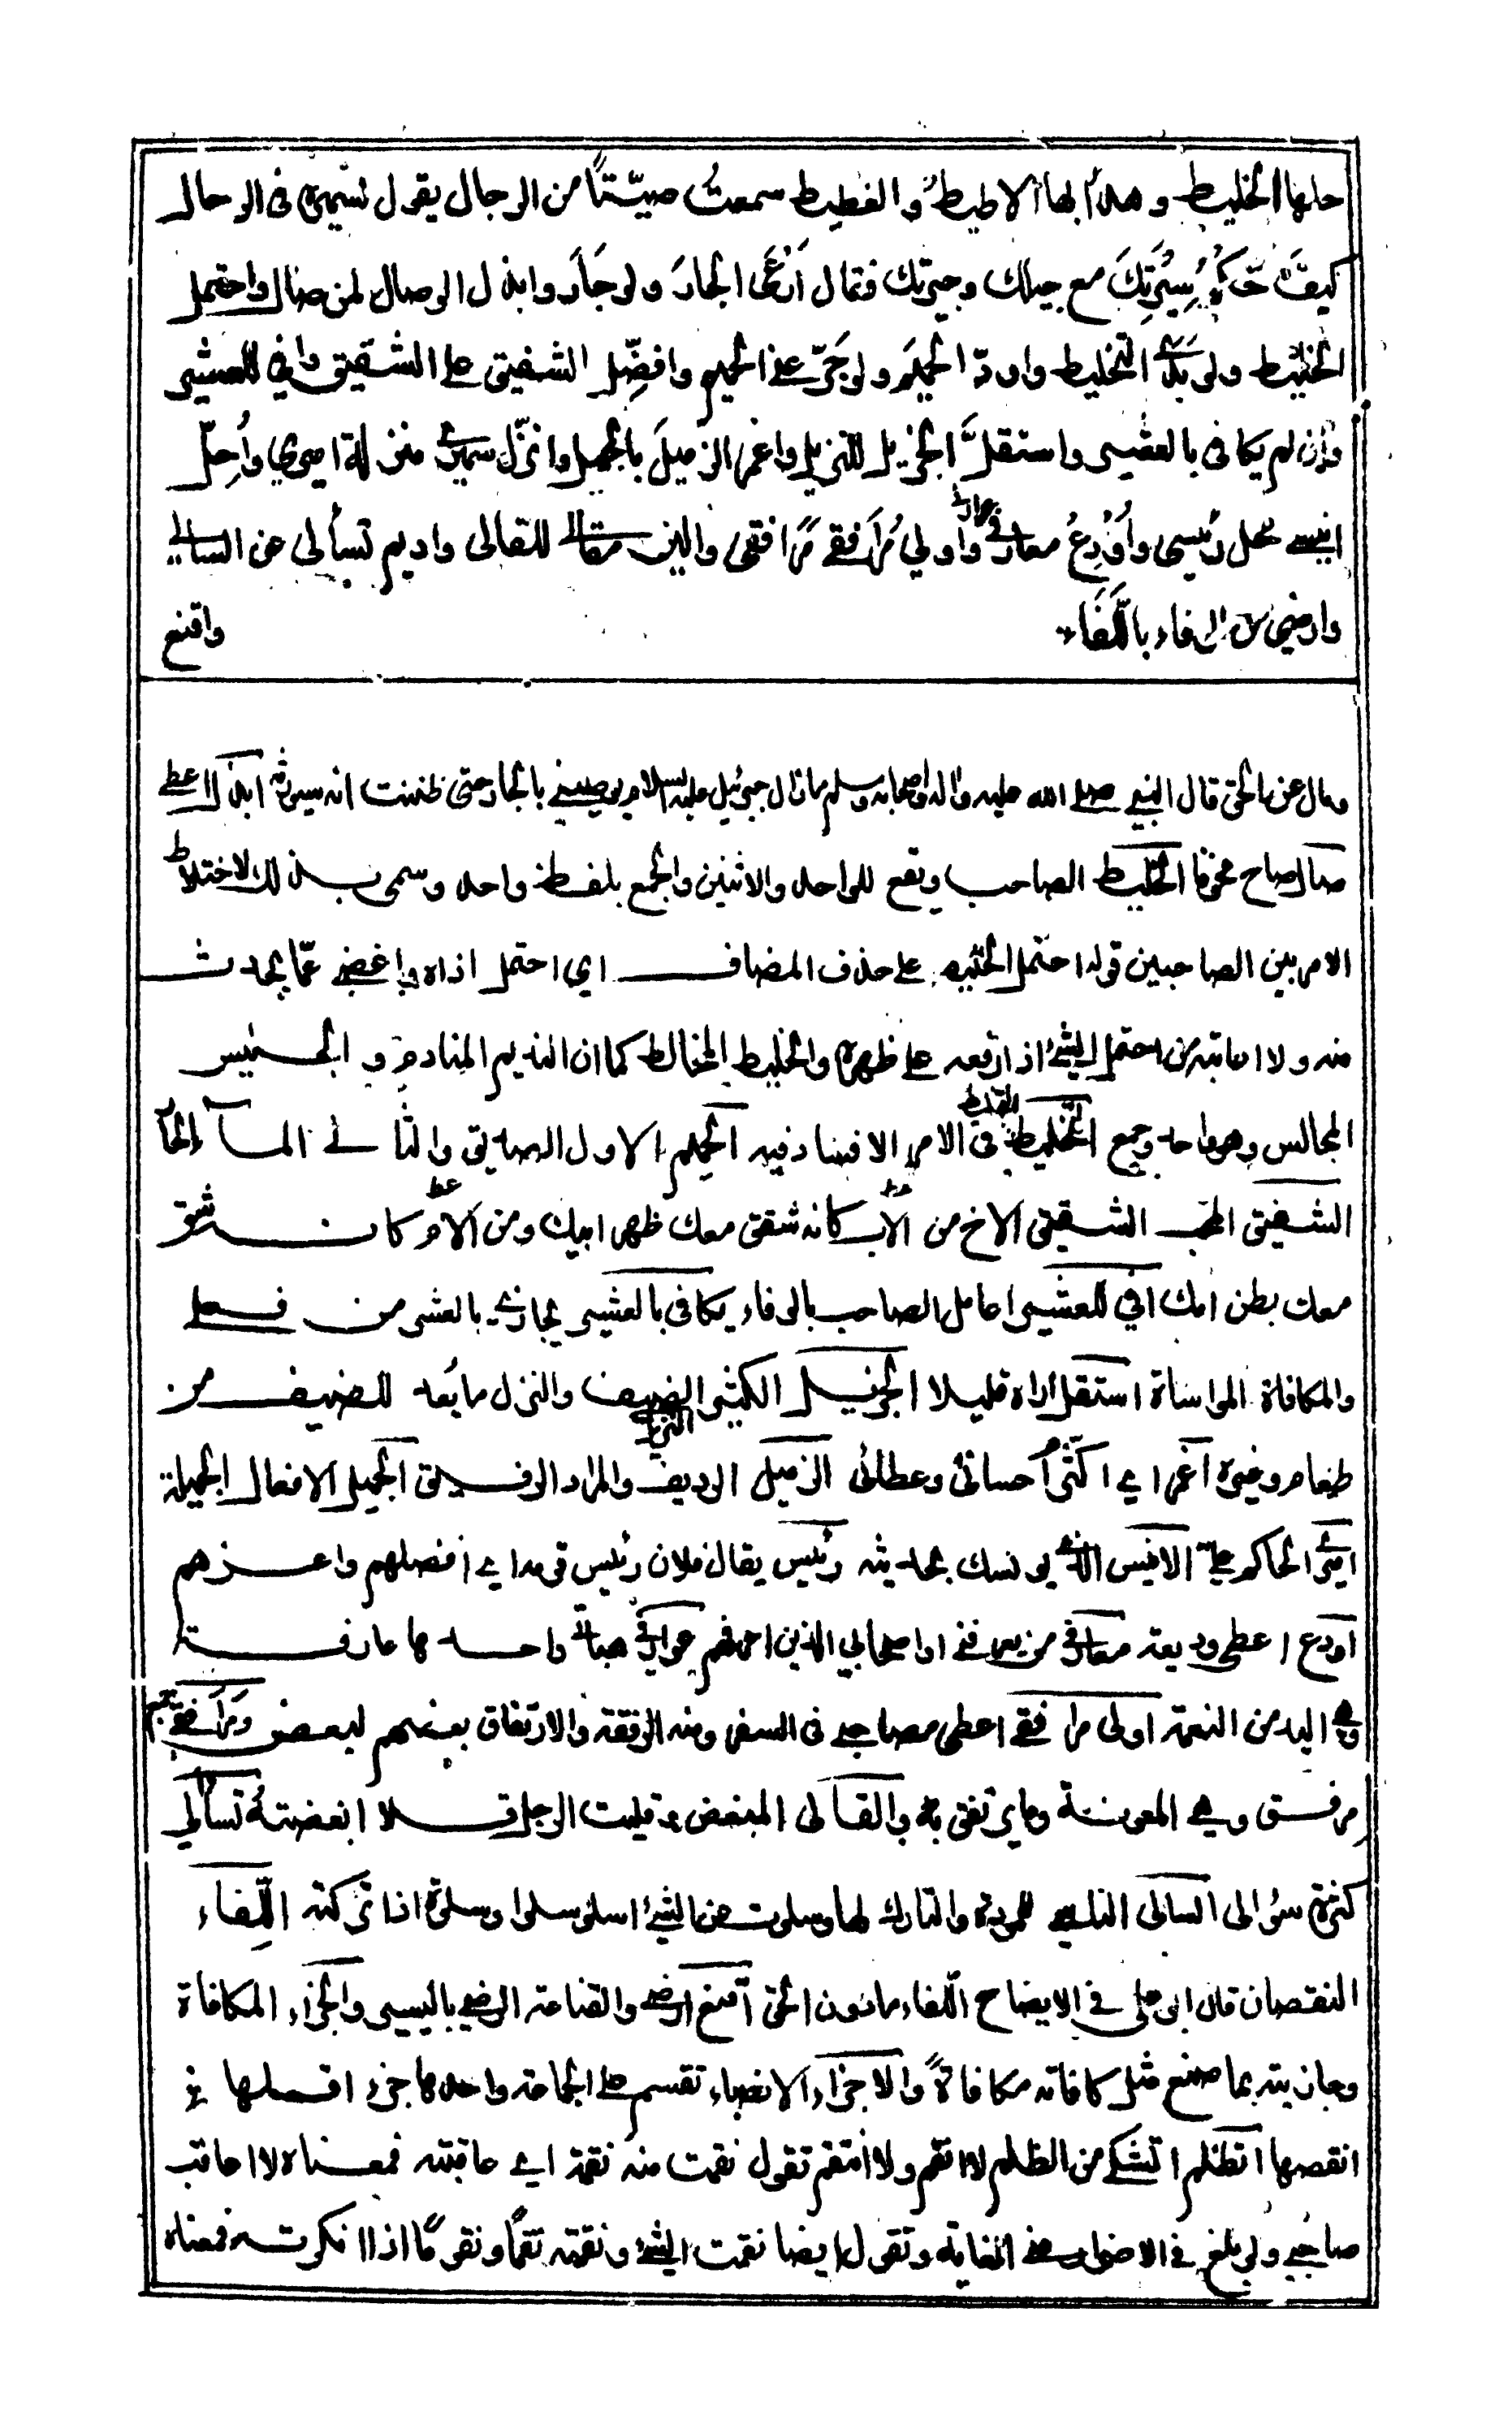 حلها الخليط وهدأ بها الاطيط والغطيط سمعت صيّتًا من الرجال يقول لسميره في الرحال
كيف حكم سيرتك مع جيلك وجيرتك فقال أرعى الجار ولو جار وابذل الوصال لمن صال واحتمل
الخليط ولو بدى التخليط واودّ الحميم ولو جرّعني الحميم وافضّل الشفيق على الشقيق وافي للعشير
وان لم يكافي بالعشير واستقلّ الجزيل للنزيل واغمر الزميل بالجميل وانزّل سميري منزلة اميري وأحلّ
انيسي محل رئيسي وأودع معارفي عوارفي واولي مرافقي مرافقي والين مقالي للقالي واديم تسألي عن السالي
وارضى من الوفاء باللفاء
واقنع
ومال عن الحق قال النبي صلى الله عليه واله واصحابه وسلم ما زال جبرئيل عليه السلام يوصيني بالجار حتى ظننت انه سيورثه ابذل اعطي
صال صاح مخوفا الخليط الصاحب ويقع للواحد والاثنين والجمع بلفظ واحد وسمي بذلك لاختلاط
الامر بين الصاحبين قوله احتمل الخليط على حذف المضاف اي احتمل اذاه واغضي عمّا يحدث
منه ولا اعاتبه من احتمل الشئ اذا رفعه على ظهره والخليط المخالط كما ان النديم المنادم و الجليس
المجالس وهو واحد وجمع التخليط في الامر الافساد فيه الحميم الاول الصديق والثاني المـاء الحار
الشفيق المحب الشقيق الاخ من الاب كانه شقق معك ظهر ابيك ومن الام كانه شق
معك بطن امك افي للعشير اعامل الصاحب بالوفاء يكافي بالعشير يجازي بالعشر من فعلي
والمكافاة المواساة استقل اراه قليلا الجزيل الكثير النزيل الضيف والنزل ما يعد للضيف من
طعام وغيره اغمر اي اكثر احساني وعطائي الزميل الرديف والمراد الرفيق الجميل الافعال الجميلة
اميري الحاكم عليّ الانيس الذي يونسك بحديثه رئيس يقال فلان رئيس قومه اي افضلهم واعزهم
اودع اعطي وديعة معارفي من يعرفني او اصحابي الذين اعرفهم عوارفي هباتي واحدها عارفة
وهي اليد من النعمة اولي مرافقي اعطي مصاحبي في السفر ومنه الرفقة والارتفاق بعضهم لبعض ومرافقي جمع
مرفق وهي المعونة وما يرتفق به والقالي المبغض وقليت الرجل قلا ابغضته تسألي
كثرة سؤالي السالي الناسي للمودة والتارك لها وسلوت عن الشئ اسلو سلوا وسلوة اذا تركته اللفاء
النقصان قال ابو علي في الايضاح اللفاء ما دون الحق اقنع ارضى والقناعة الرضى باليسير والجزاء المكافاة
وجازيته بما صنع مثل كافاته مكافاةً والاجزاء الانصباء تقسم على الجماعة واحدها جزء اقلها
انقصها اتظلم اتشكى من الظلم لا انقم ولا انتقم تقول نقمت منه نقمة اي عاقبته فمعناه لا اعاقب
صاحبي ولو بلغ في الاضرار في الغاية وتقول ايضا نقمت الشئ ونقمته نقمًا ونقومًا اذا انكرته فمعناه